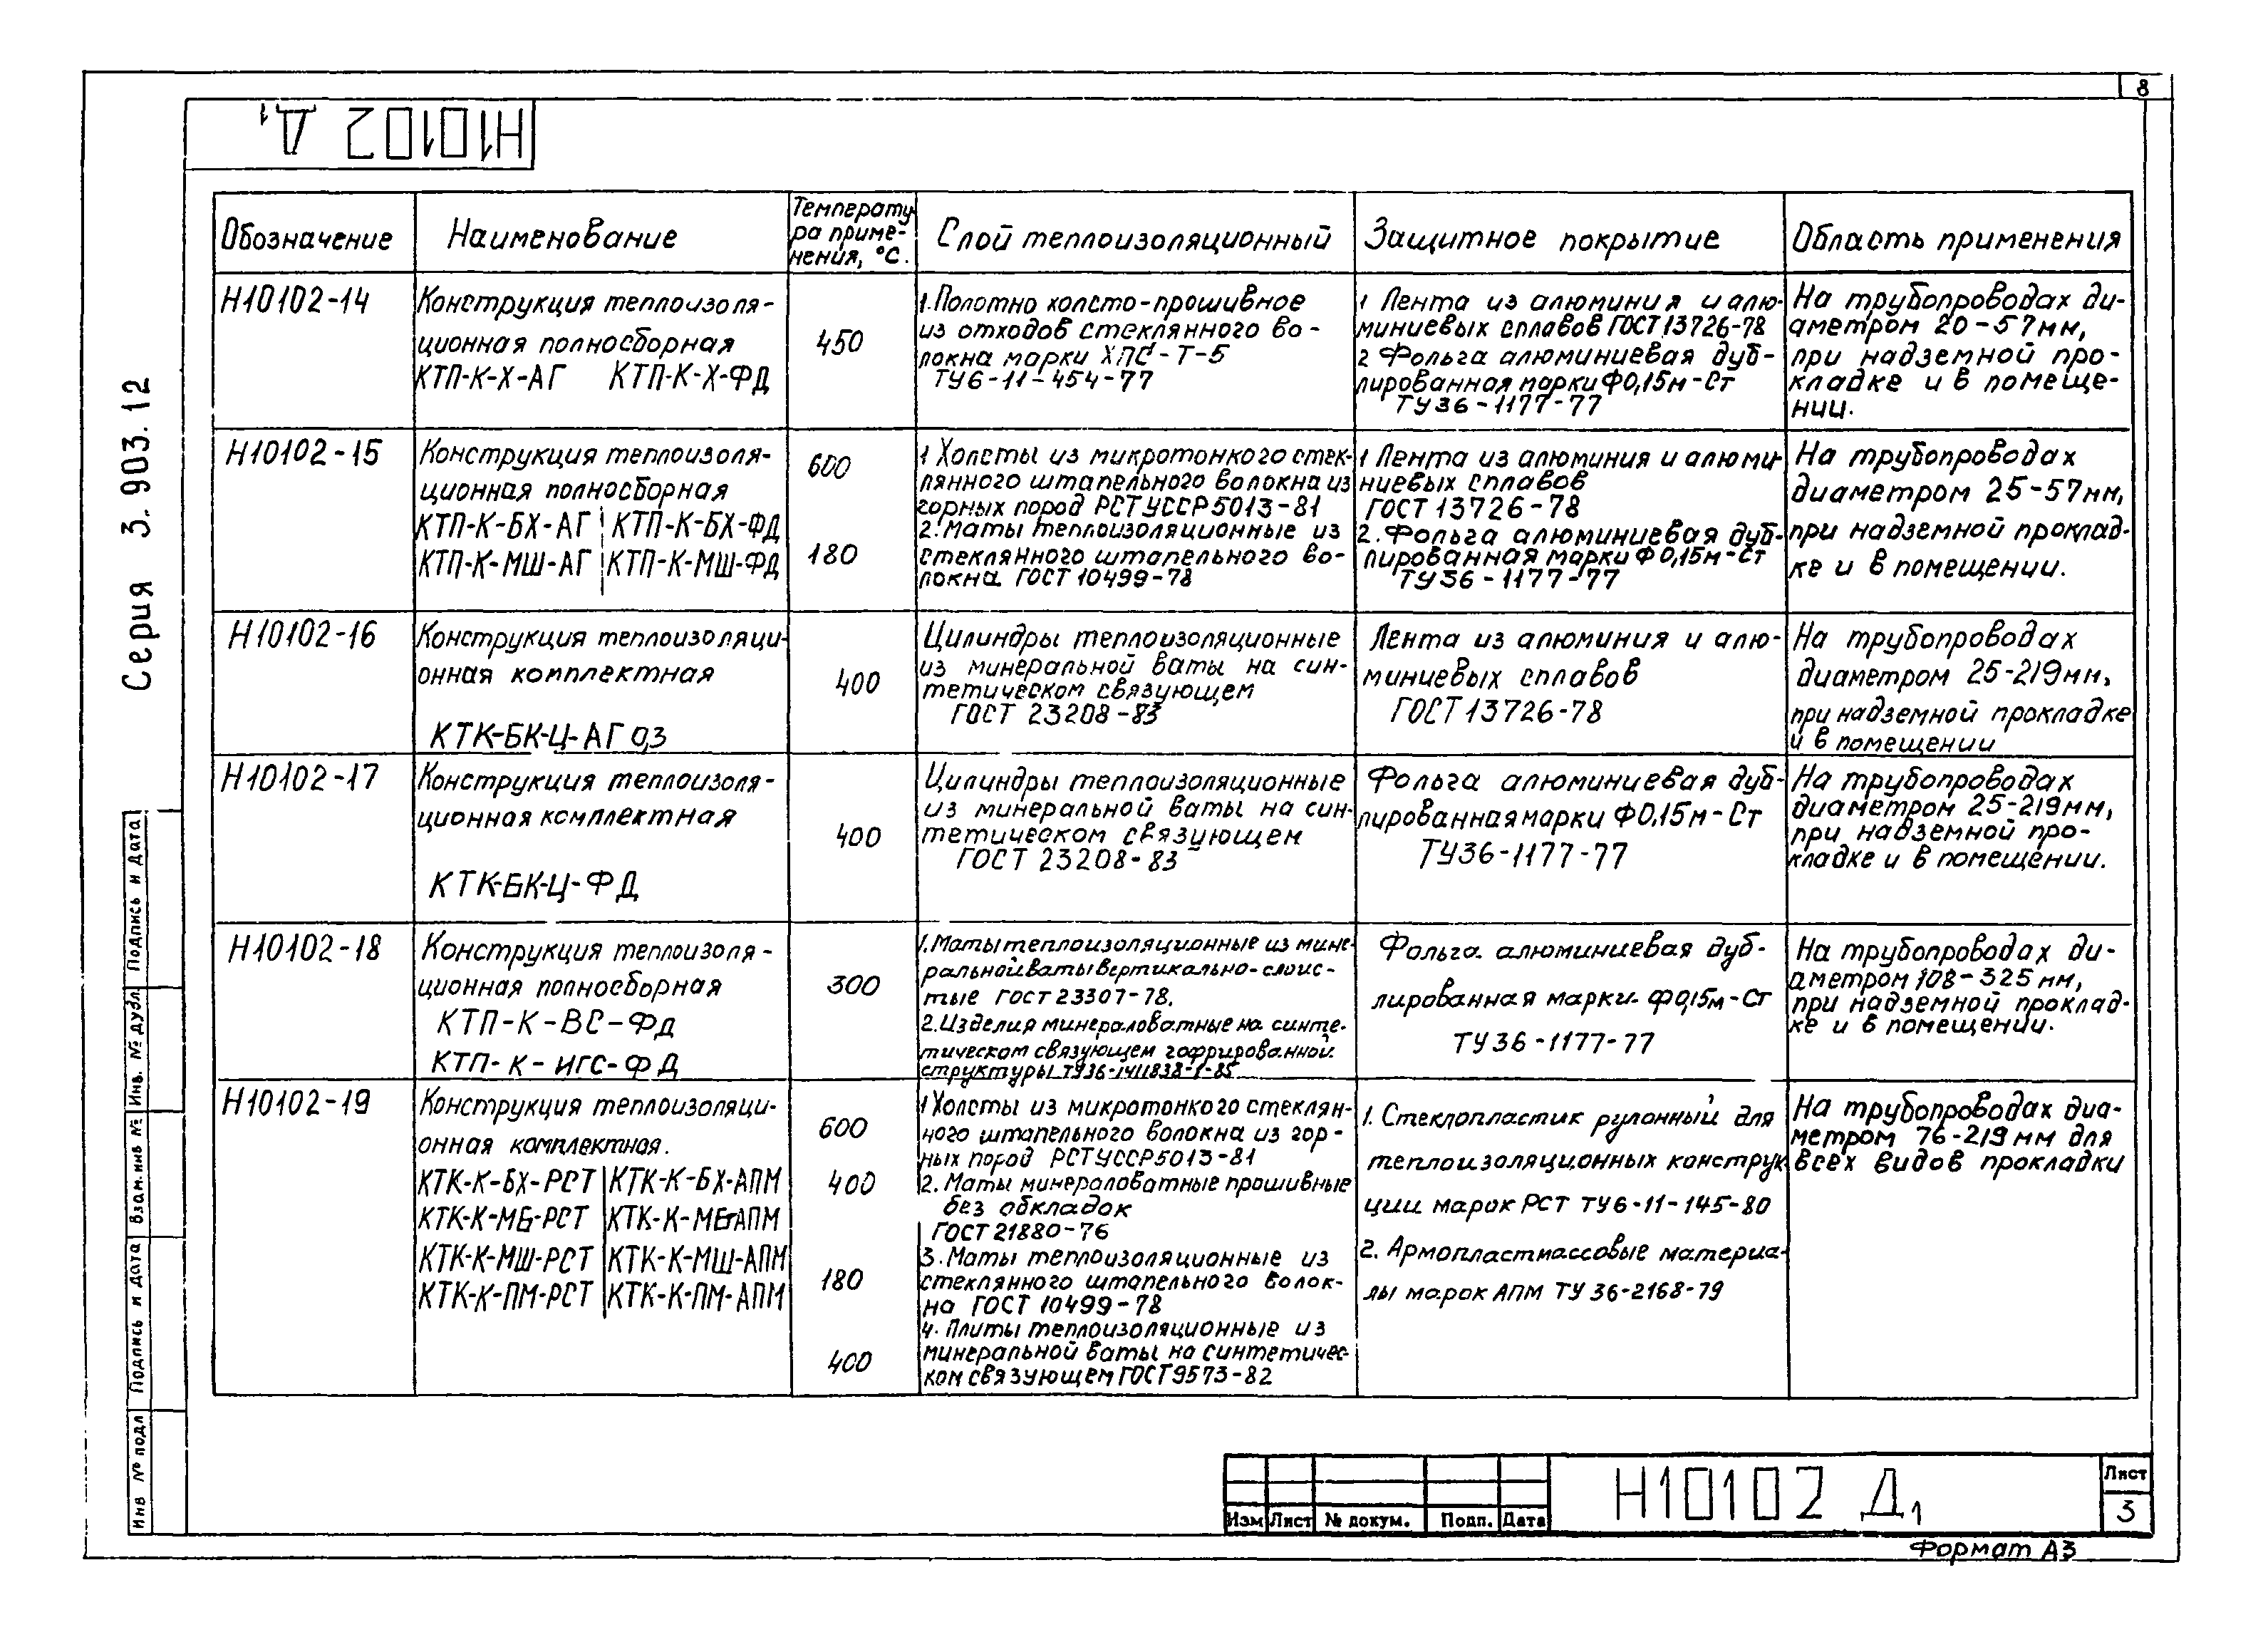 8
Н10102 Д1
Серия 3.903.12
Обозначение
Наименование
Температу
ра приме-
нения, °С.
Слой теплоизоляционный
Защитное покрытие
Область применения
Н10102-14
Конструкция теплоизоля-
ционная полносборная
КТП-К-Х-АГ КТП-К-Х-ФД
450
1. Полотно холсто-прошивное
из отходов стеклянного во-
локна марки ХПС-Т-5
ТУ6-11-454-77
1 Лента из алюминия и алю-
миниевых сплавов ГОСТ 13726-78
2 Фольга алюминиевая дуб-
лированная марки Ф0,15м-Ст
ТУ36-1177-77
На трубопроводах ди-
аметром 20-57мм,
при надземной про-
кладке и в помеще-
нии.
Н10102-15
Конструкция теплоизоля-
ционная полносборная
КТП-К-БХ-АГ КТП-К-БХ-ФД
КТП-К-МШ-АГ КТП-К-МШ-ФД
600
180
1 Холсты из микротонкого стек-
лянного штапельного волокна из
горных пород РСТ УССР 5013-81
2. Маты теплоизоляционные из
стеклянного штапельного во-
локна ГОСТ 10499-78
1 Лента из алюминия и алюми
ниевых сплавов
ГОСТ 13726-78
2. Фольга алюминиевая дуб-
лированная марки Ф0,15м-Ст
ТУ36-1177-77
На трубопроводах
диаметром 25-57мм,
при надземной проклад-
ке и в помещении.
Н10102-16
Конструкция теплоизоляци-
онная комплектная
КТК-БК-Ц-АГ 0,3
400
Цилиндры теплоизоляционные
из минеральной ваты на син-
тетическом связующем
ГОСТ 23208-83
Лента из алюминия и алю-
миниевых сплавов
ГОСТ 13726-78
На трубопроводах
диаметром 25-219мм,
при надземной прокладке
и в помещении
Н10102-17
Конструкция теплоизоля-
ционная комплектная
КТК-БК-Ц-ФД
400
Цилиндры теплоизоляционные
из минеральной ваты на син-
тетическом связующем
ГОСТ 23208-83
Фольга алюминиевая дуб-
лированная марки Ф0,15м-Ст
ТУ36-1177-77
На трубопроводах
диаметром 25-219мм,
при надземной про-
кладке и в помещении.
Н10102-18
Конструкция теплоизоля-
ционная полносборная
КТП-К-ВС-ФД
КТП-К-ИГС-ФД
300
1. Маты теплоизоляционные из мине-
ральной ваты вертикально-слоис-
тые ГОСТ 23307-78.
2. Изделия минераловатные на синте-
тическом связующем гофрированной
структуры ТУ36-1411838-1-85
Фольга алюминиевая дуб-
лированная марки Ф0,15м-Ст
ТУ36-1177-77
На трубопроводах ди-
аметром 108-325 мм,
при надземной проклад-
ке и в помещении.
Н10102-19
Конструкция теплоизоляци-
онная комплектная.
КТК-К-БХ-РСТ КТК-К-БХ-АПМ
КТК-К-МБ-РСТ КТК-К-МБ-АПМ
КТК-К-МШ-РСТ КТК-К-МШ-АПМ
КТК-К-ПМ-РСТ КТК-К-ПМ-АПМ
600
400
180
400
1 Холсты из микротонкого стеклян-
ного штапельного волокна из гор-
ных пород РСТ УССР 5013-81
2. Маты минераловатные прошивные
без обкладок
ГОСТ 21880-76
3. Маты теплоизоляционные из
стеклянного штапельного волок-
на ГОСТ 10499-78
4. Плиты теплоизоляционные из
минеральной ваты на синтетичес-
ком связующем ГОСТ 9573-82
1. Стеклопластик рулонный для
теплоизоляционных конструк
ции марок РСТ ТУ6-11-145-80
2. Армопластмассовые материа-
лы марок АПМ ТУ 36-2168-79
На трубопроводах диа-
метром 76-219 мм для
всех видов прокладки
Инв № подл
Подпись и дата
Взам. инв №
Инв. № дубл.
Подпись и дата
Изм Лист № докум. Подп. Дата
Н10102 Д1
Лист
3
Формат А3